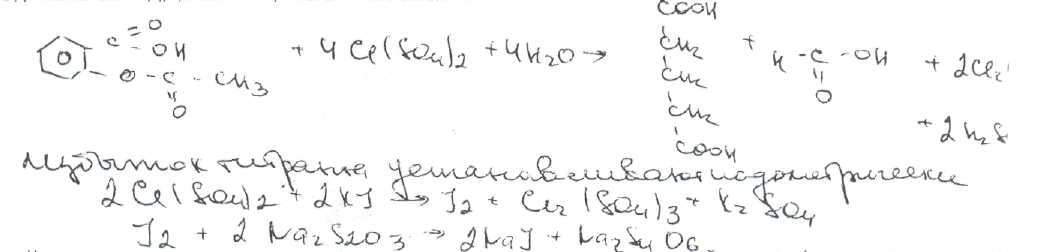 C=O
OH
O-C-CH3
O
+ 4 Ce(SO4)2 + 4H2O →
COOH
CH2
CH2
CH2
COOH
+ H-C-OH
O
+ 2Ce2
+ 2H2S
Избыток титранта устанавливают иодометрически
2Ce(SO4)2 + 2KJ → J2 + Ce2(SO4)3 + K2SO4
J2 + 2Na2S2O3 → 2NaJ + Na2S4O6.